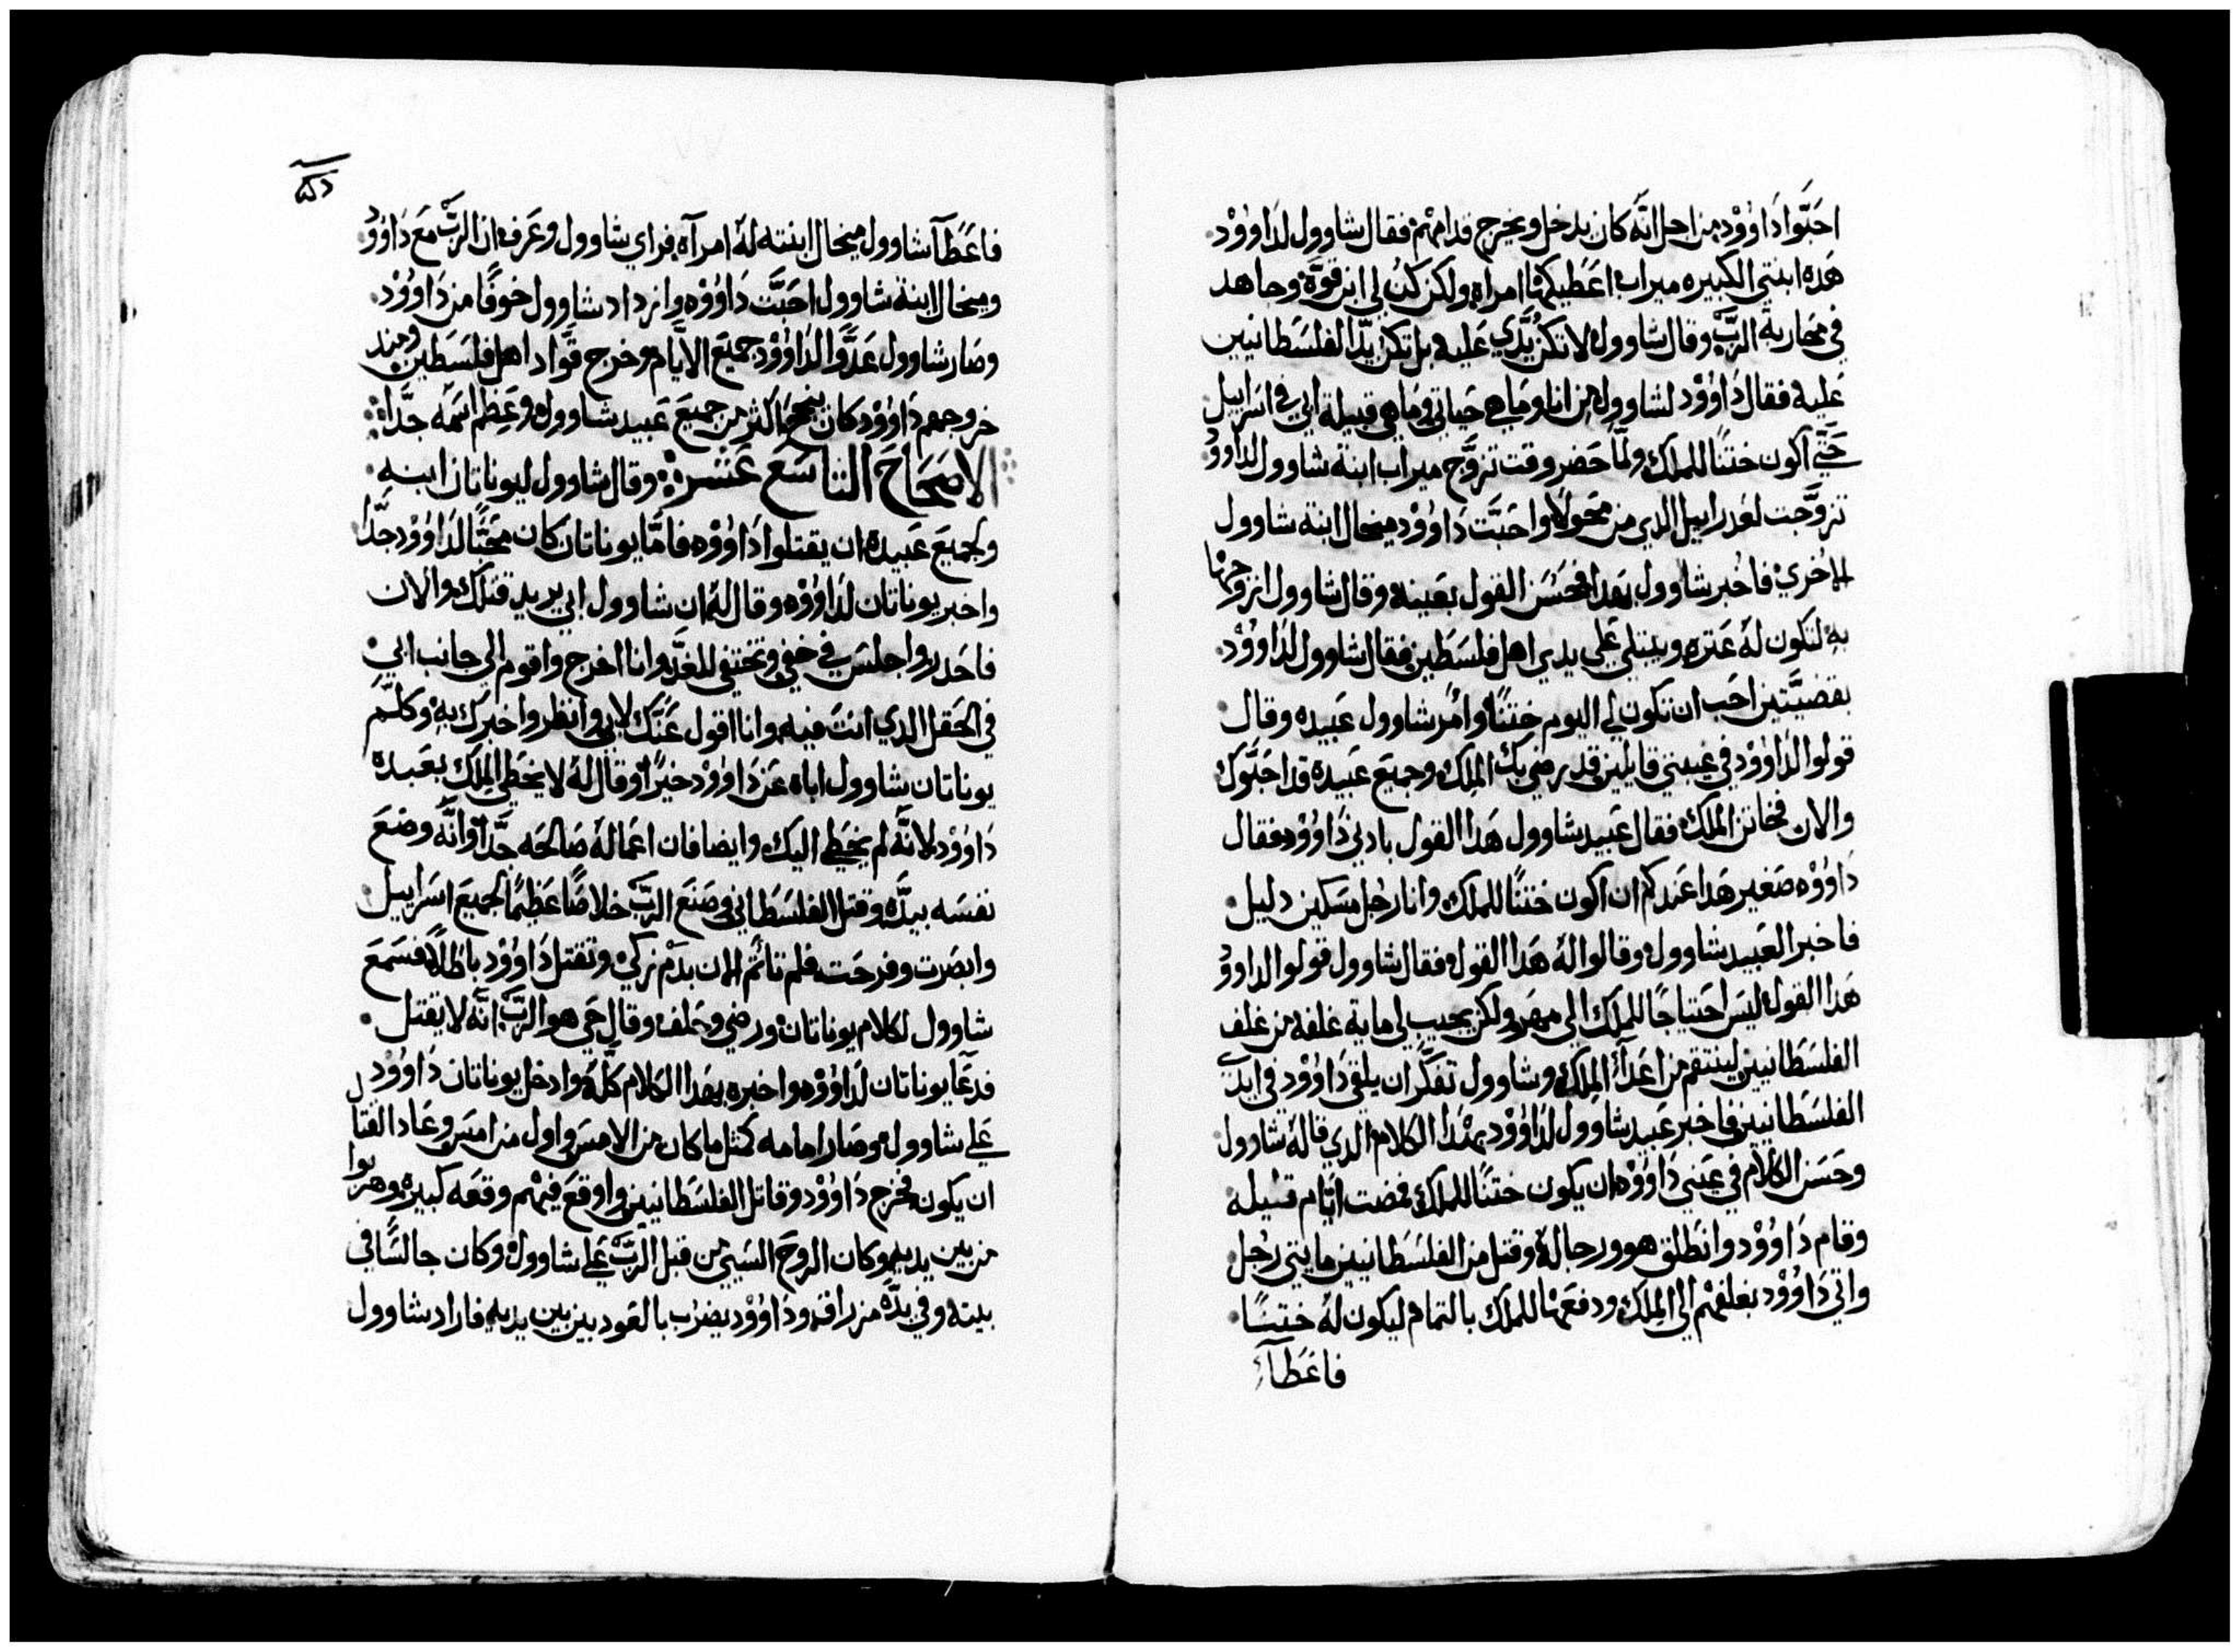 احَبّوا دَاوُوْد من اجل انّه كان يدخل ويخرج قدامهم فقال شاوول لدَاوُوْد
هَده ابنتي الكبيره ميراب اعَطيكها امراه ولكن كنُ لي ابن قوّة وجاهد
في محاربة الربّ وقال شاوول لا تكن يدّي عَليه بل تكن يدّ الفلسَطانيين
عَليه فقال دَاوُوْد لشاوول من انا وما هي حَياتي وما هي قبيلة ابي في اسَراييل
حَتّي اكون ختنًا للملك ولمّا حَضر وقت تزوّج ميراب ابنة شاوول لداوُوْد
تزوّجت لعَدراييل الدي من محَولا واحَبَّت دَاوُوْد ميخال ابنة شاوول
الاخُري فاخُبر شاوول بهَدا فحَسَن القول بعَينه وقال شاوول ازوجها
به لتكون لهُ عَتره ويبتلي عَلي يدي اهل فلسَطين فقال شاوول لدَاوُوْد
بقضيَّتين احَب ان تكون لي اليوم ختنًا وامُر شاوول عَبيده وقال
قولوا لدَاوُوْد في غيبتي قايلين قد رضي بك الملِك وجميعَ عَبيده قد احَبَّوك
والان فخاتن الملك فقال عَبيد شاوول هَدا القول بادني دَاوُوْد فقال
دَاوُوْد صَغير هَدا عَندكم ان اكون ختنًا للملك وانا رجُل مسَكين دليل
فاخبر العَبيد شاوول وقالوا لهُ هَدا القول فقال شاوول قولوا لداووُد
هَدا القول ليسَ احَتياجًا للملِك الي مهَر ولكن يجيب لي ماية غلفه من غلف
الفلسَطانيين لينتقم من اعَدآء الملِك وشاوول تفكَّر ان يلقي دَاوُوْد في ايدَي
الفلسَطانيين فاخبر عَبيد شاوول لدَاوُوْد بهَدا الكلام الدي قالهُ شاوول
وحَسَن الكلام في عَيني دَاوُوْد ان يكون ختنًا للملك فمضت ايّام قليله
وقام دَاوُوْد وانطَلق هو ورجالهُ وقتل من الفلسَطانيين مايتي رجُل
واتي دَاوُوْد بغلفهْم الي الملِك ودفعَها للملك بالتمام ليكون لهُ ختنًا
فاعَطآء
فاعَطآ شاوول ميخال ابنته لهُ امرآه فراي شاوول وعَرف ان الربّ معَ دَاوُوْد
وميخال ابنة شاوول احَبَّت دَاوُوْد وازداد شاوول خوفًا من دَاوُوْد
وصَار شاوول عَدّوًا لدَاوُوْد جميعَ الايَّام وخرج قوّاد اهل فلسَطين ومند
خروجهم دَاوُوْد كان ينجح اكثر من جميعَ عَبيد شاوول وعَظم اسَمه جدًّا
الاصَحَاحَ التاسَعَ عَشر وقال شاوول ليوناتان ابنه
ولجميعَ عَبيده ان يقتلوا دَاوُوْد فامَّا يوناتان كان محَبًّا لدَاوُوْد جدًّا
واخبر يوناتان لدَاوُوْد وقال لهُ ان شاوول ابي يريد قتلك والان
فاحَدر واجلسَ في خفي وتختفي للغدّ وانا اخرج واقوم الي جانب ابي
في الحَقل الدي انتَ فيه وانا اقول عَنَّك لابي وانظر واخبرك به وكلّم
يوناتان شاوول اباه عَن دَاوُوْد خيرًا وقال لهُ لا يخطَي الملِك بعَبده
دَاوُوْد لانَّه لم يخطَي اليك وايضا فان اعَمالهُ صَالحَه جدًّا وانَّه وضعَ
نفسَه بيدّه وقتل الفلسَطاني وصَنعَ الربّ خلاصًا عَظيمًا لجميعَ اسَراييل
وابصَرت وفرحَت فلم تاثم الان بدم زكي وتقتل دَاوُوْد باطَلًا فسَمعَ
شاوول لكلام يوناتان ورضي وحَلف وقال حَي هو الربّ انَّه لا يقتل
فدعَا يوناتان لدَاوُوْد واخبره بهَدا الكلام كلّهُ وادخل يوناتان دَاوُوْد
عَلي شاوول وصَار امامه كمثل ما كان من الامسَ واول من امسَ وعَاد القتال
ان يكون فخرج دَاوُوْد وقاتل الفلسَطانيين واوقعَ فيهْم وقعَه كبيره وهربوا
من بين يديه وكان الروحَ السَيي من قبل الربّ عَلي شاوول وكان جالسًَا في
بيته وفي يدّه مزراق ودَاوُوْد يضرُب بالعَود بين يديه فاراد شاوول